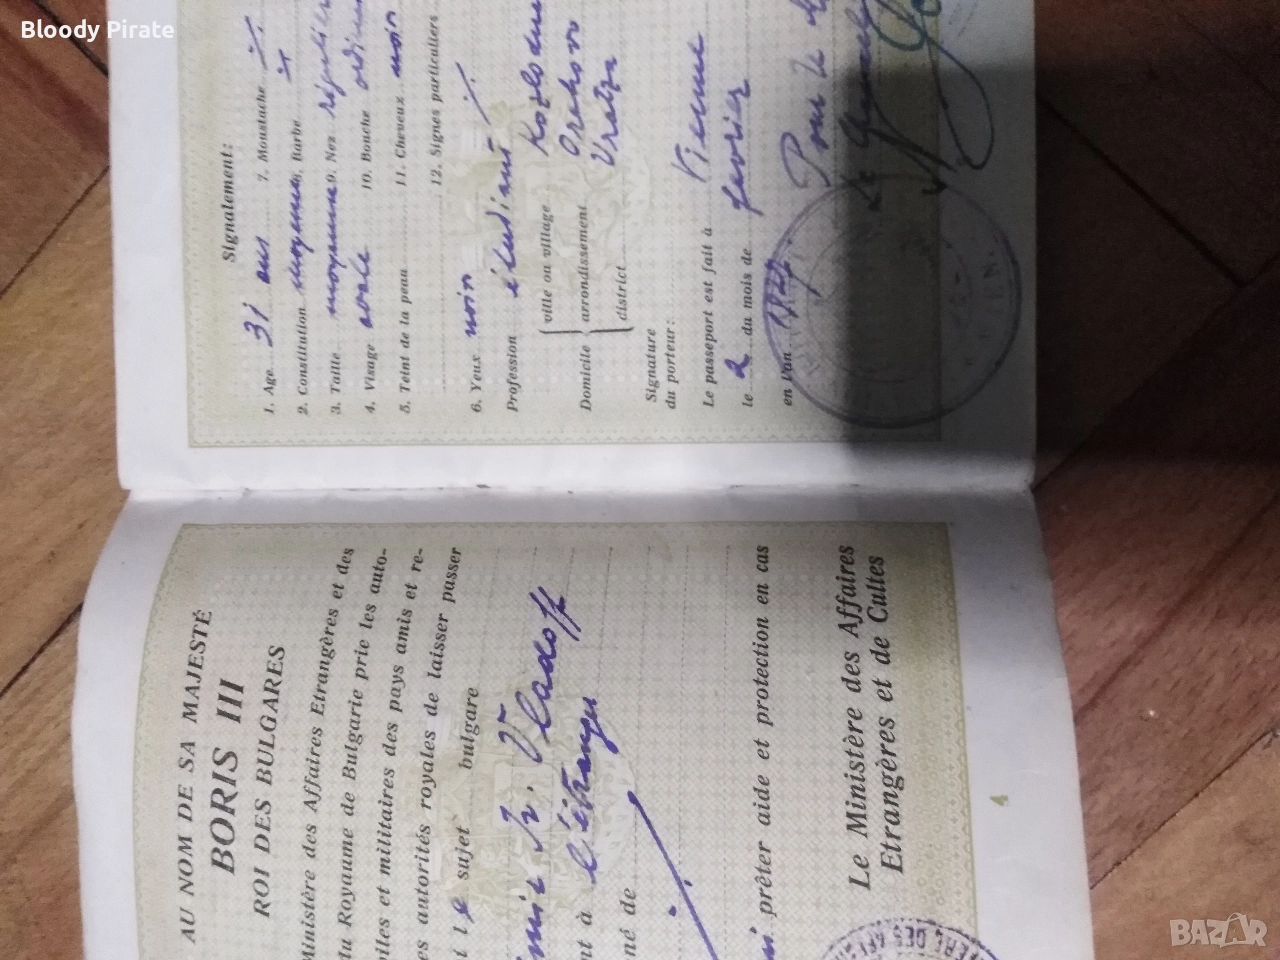 Bloody Pirate
AU NOM DE SA MAJESTÉ
BORIS III
ROI DES BULGARES
Ministère des Affaires Etrangères et des
du Royaume de Bulgarie prie les auto-
iles et militaires des pays amis et re-
es autorités royales de laisser passer
le sujet bulgare
Vladoff
nt à l'étranger
né de
prêter aide et protection en cas
Le Ministère des Affaires
Etrangères et de Cultes
4
Signalement:
1. Age 31 ans 7. Moustache
2. Constitution moyenne 8. Barbe
3. Taille moyenne 9. Nez
4. Visage ovale 10. Bouche
5. Teint de la peau 11. Cheveux noir
12. Signes particuliers
6. Yeux noir
Profession étudiant
Domicile
ville ou village Kozlodui
arrondissement Orehovo
district Vratza
Signature
du porteur:
Le passeport est fait à Vienne
le 2 du mois de fevrier
en l'an
Pour le
BAZAR